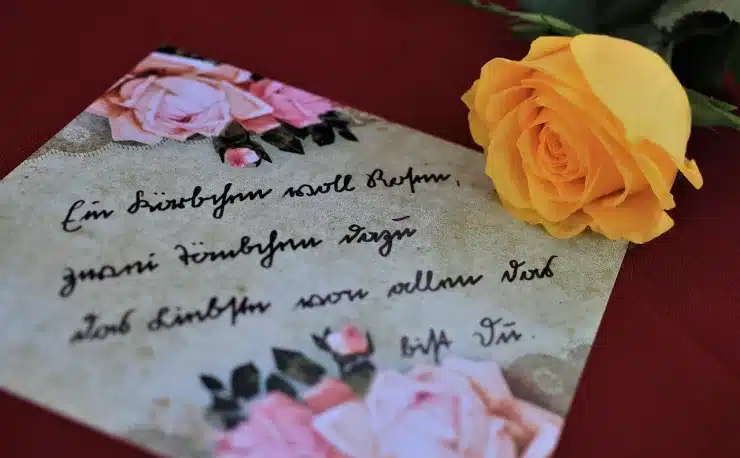 Ein Körbchen voll Rosen,
zwei Täubchen dazu
Das Liebste von allen das
bist Du.